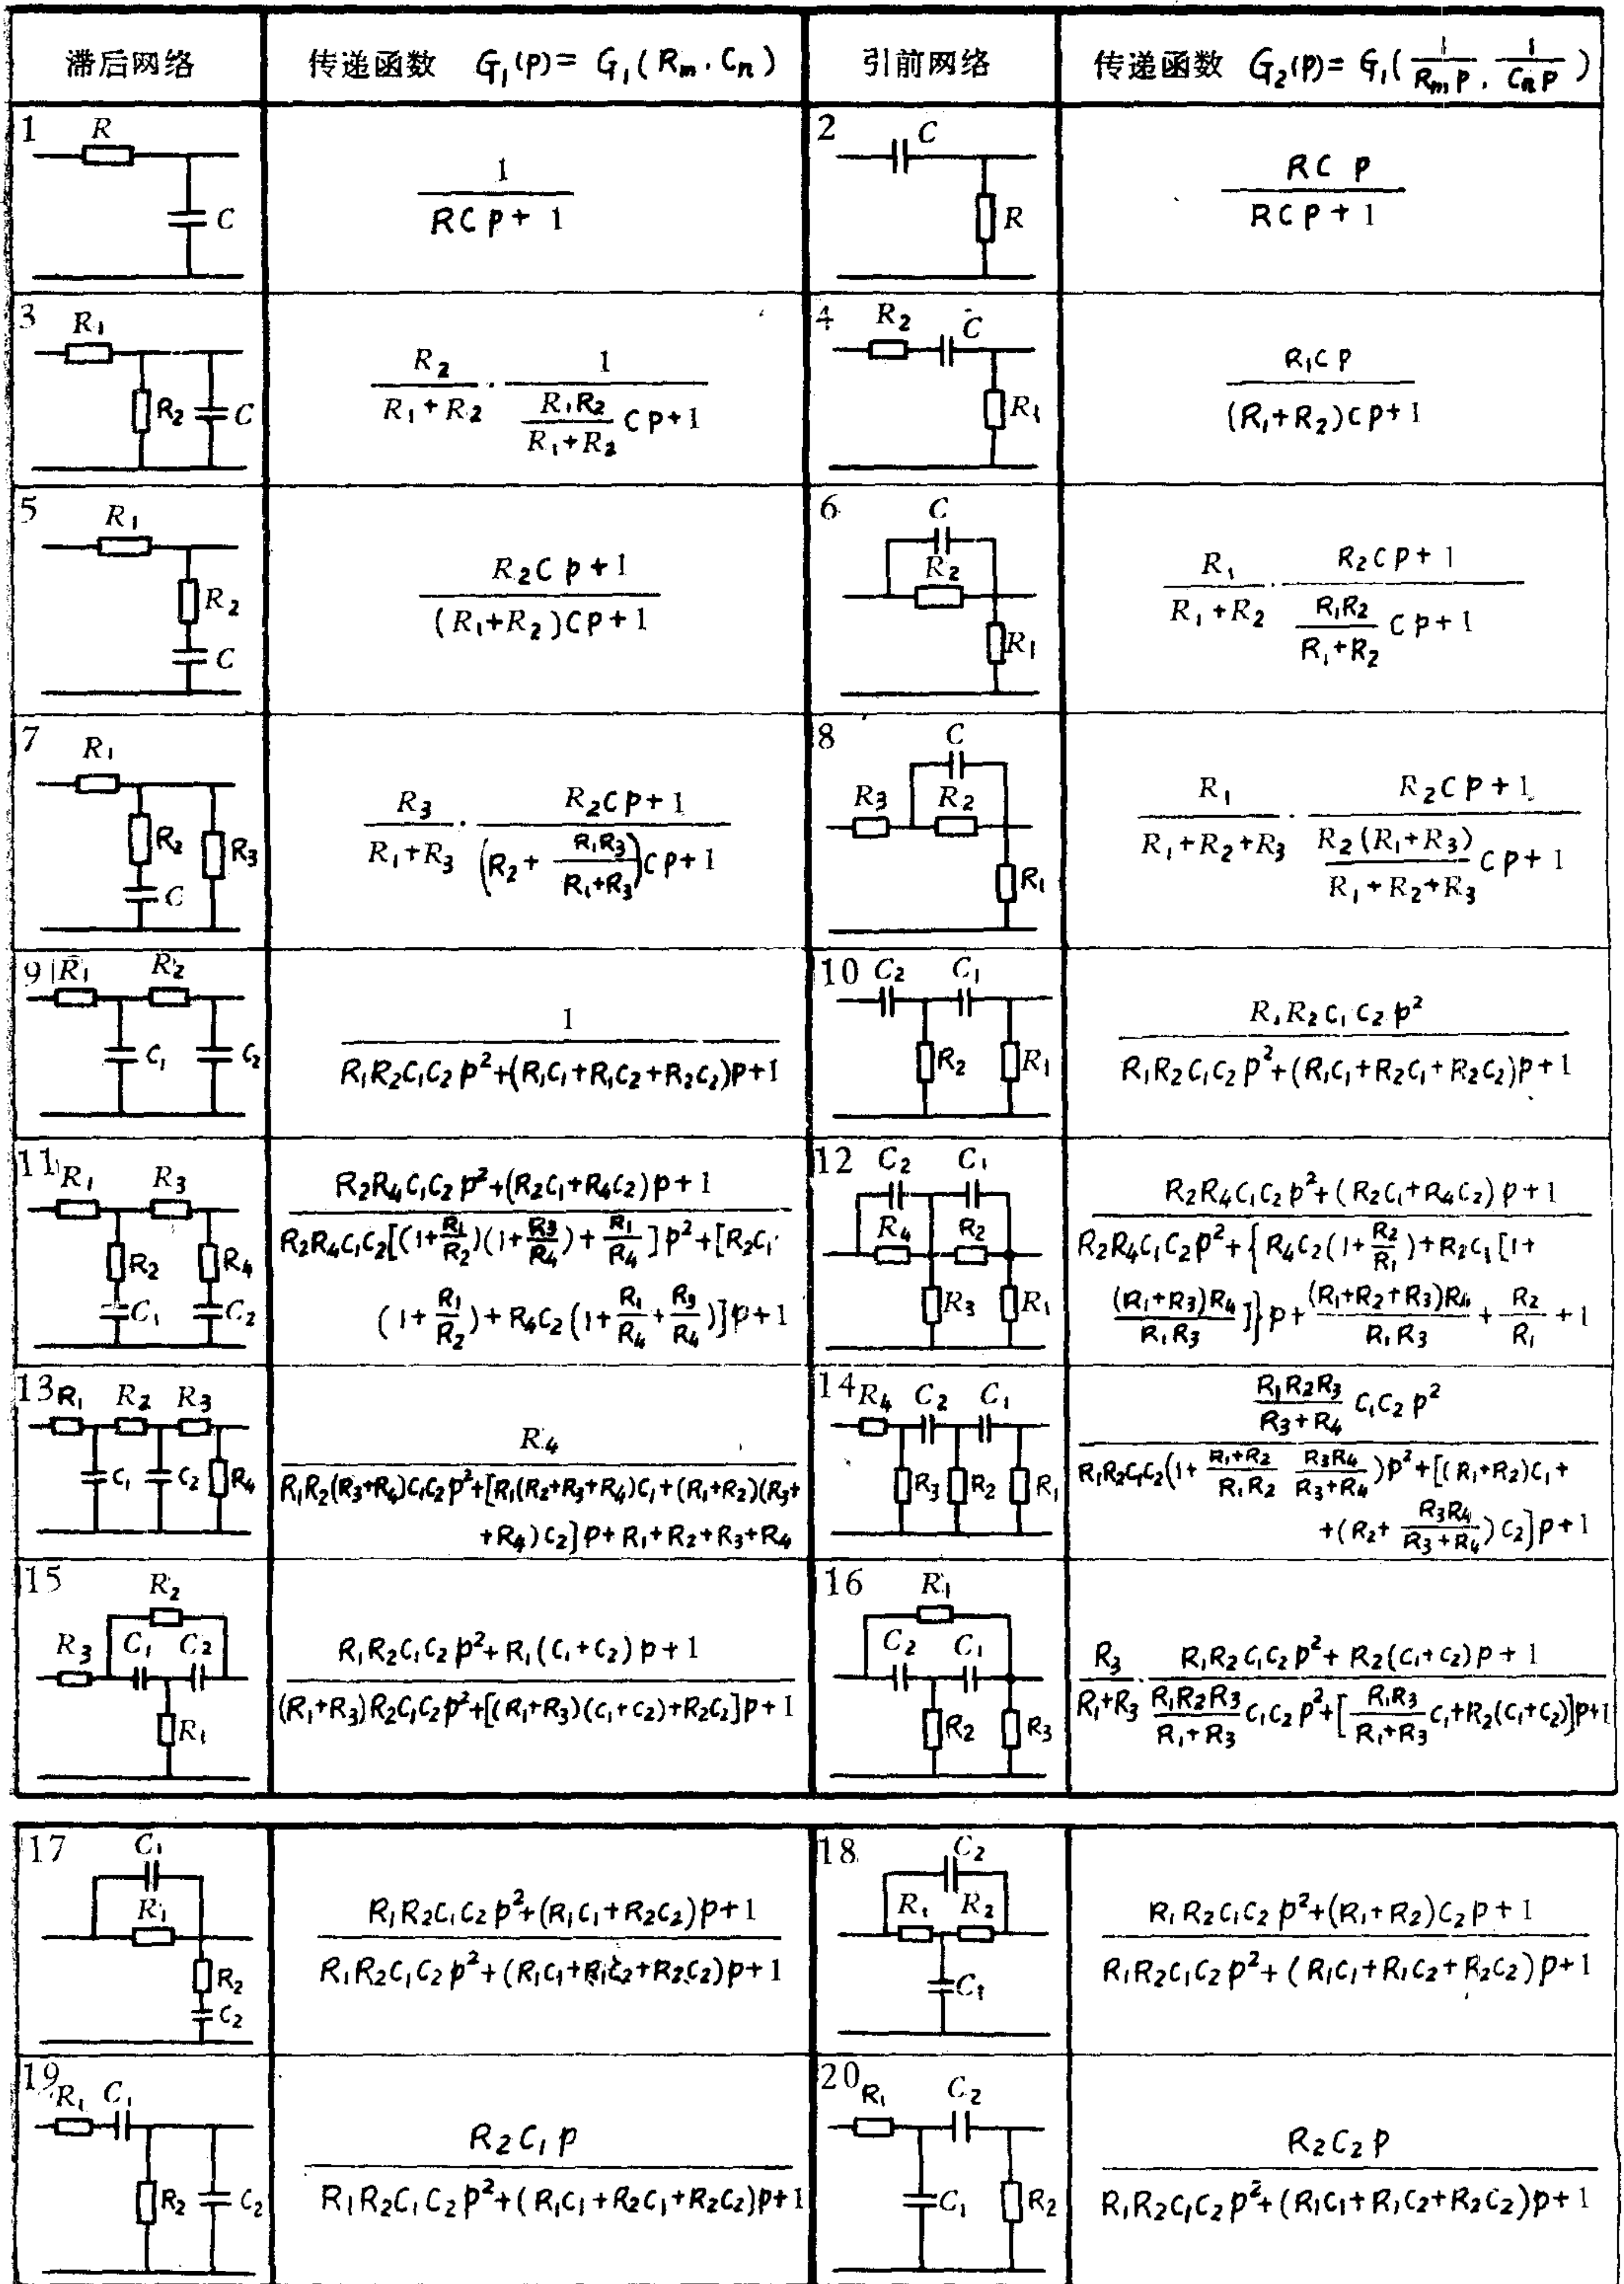 滞后网络 传递函数 G₁(p)= G₁(Rₘ, Cₙ) 引前网络 传递函数 G₂(p)= G₁(1/(Rₘp), 1/(Cₙp))
1 R C
1/(RCp+1)
2 C R
RCp/(RCp+1)
3 R₁ R₂ C
R₂/(R₁+R₂) · 1/((R₁R₂/(R₁+R₂))Cp+1)
4 R₂ C R₁
R₁Cp/((R₁+R₂)Cp+1)
5 R₁ R₂ C
(R₂Cp+1)/((R₁+R₂)Cp+1)
6 C R₂ R₁
R₁/(R₁+R₂) · (R₂Cp+1)/((R₁R₂/(R₁+R₂))Cp+1)
7 R₁ R₂ R₃ C
R₃/(R₁+R₃) · (R₂Cp+1)/((R₂+R₁R₃/(R₁+R₃))Cp+1)
8 C R₃ R₂ R₁
R₁/(R₁+R₂+R₃) · (R₂Cp+1)/((R₂(R₁+R₃)/(R₁+R₂+R₃))Cp+1)
9 R₁ R₂ C₁ C₂
1/(R₁R₂C₁C₂p²+(R₁C₁+R₁C₂+R₂C₂)p+1)
10 C₂ C₁ R₂ R₁
R₁R₂C₁C₂p²/(R₁R₂C₁C₂p²+(R₁C₁+R₂C₁+R₂C₂)p+1)
11 R₁ R₃ R₂ R₄ C₁ C₂
(R₂R₄C₁C₂p²+(R₂C₁+R₄C₂)p+1)/(R₂R₄C₁C₂[(1+R₁/R₂)(1+R₃/R₄)+R₁/R₄]p²+[R₂C₁·
(1+R₁/R₂)+R₄C₂(1+R₁/R₄+R₃/R₄)]p+1)
12 C₂ C₁ R₄ R₂ R₃ R₁
(R₂R₄C₁C₂p²+(R₂C₁+R₄C₂)p+1)/(R₂R₄C₁C₂p²+{R₄C₂(1+R₂/R₁)+R₂C₁[1+
(R₁+R₃)R₄/(R₁R₃)]}p+(R₁+R₂+R₃)R₄/(R₁R₃)+R₂/R₁+1)
13 R₁ R₂ R₃ C₁ C₂ R₄
R₄/(R₁R₂(R₃+R₄)C₁C₂p²+[R₁(R₂+R₃+R₄)C₁+(R₁+R₂)(R₃+
+R₄)C₂]p+R₁+R₂+R₃+R₄)
14 R₄ C₂ C₁ R₃ R₂ R₁
(R₁R₂R₃/(R₃+R₄))C₁C₂p²/(R₁R₂C₁C₂(1+(R₁+R₂)/(R₁R₂) R₃R₄/(R₃+R₄))p²+[(R₁+R₂)C₁+
+(R₂+R₃R₄/(R₃+R₄))C₂]p+1)
15 R₂ R₃ C₁ C₂ R₁
(R₁R₂C₁C₂p²+R₁(C₁+C₂)p+1)/((R₁+R₃)R₂C₁C₂p²+[(R₁+R₃)(C₁+C₂)+R₂C₂]p+1)
16 R₁ C₂ C₁ R₂ R₃
R₃/(R₁+R₃) · (R₁R₂C₁C₂p²+R₂(C₁+C₂)p+1)/((R₁R₂R₃/(R₁+R₃))C₁C₂p²+[(R₁R₃/(R₁+R₃))C₁+R₂(C₁+C₂)]p+1)
17 C₁ R₁ R₂ C₂
(R₁R₂C₁C₂p²+(R₁C₁+R₂C₂)p+1)/(R₁R₂C₁C₂p²+(R₁C₁+R₁C₂+R₂C₂)p+1)
18 C₂ R₁ R₂ C₁
(R₁R₂C₁C₂p²+(R₁+R₂)C₂p+1)/(R₁R₂C₁C₂p²+(R₁C₁+R₁C₂+R₂C₂)p+1)
19 R₁ C₁ R₂ C₂
R₂C₁p/(R₁R₂C₁C₂p²+(R₁C₁+R₂C₁+R₂C₂)p+1)
20 R₁ C₂ C₁ R₂
R₂C₂p/(R₁R₂C₁C₂p²+(R₁C₁+R₁C₂+R₂C₂)p+1)